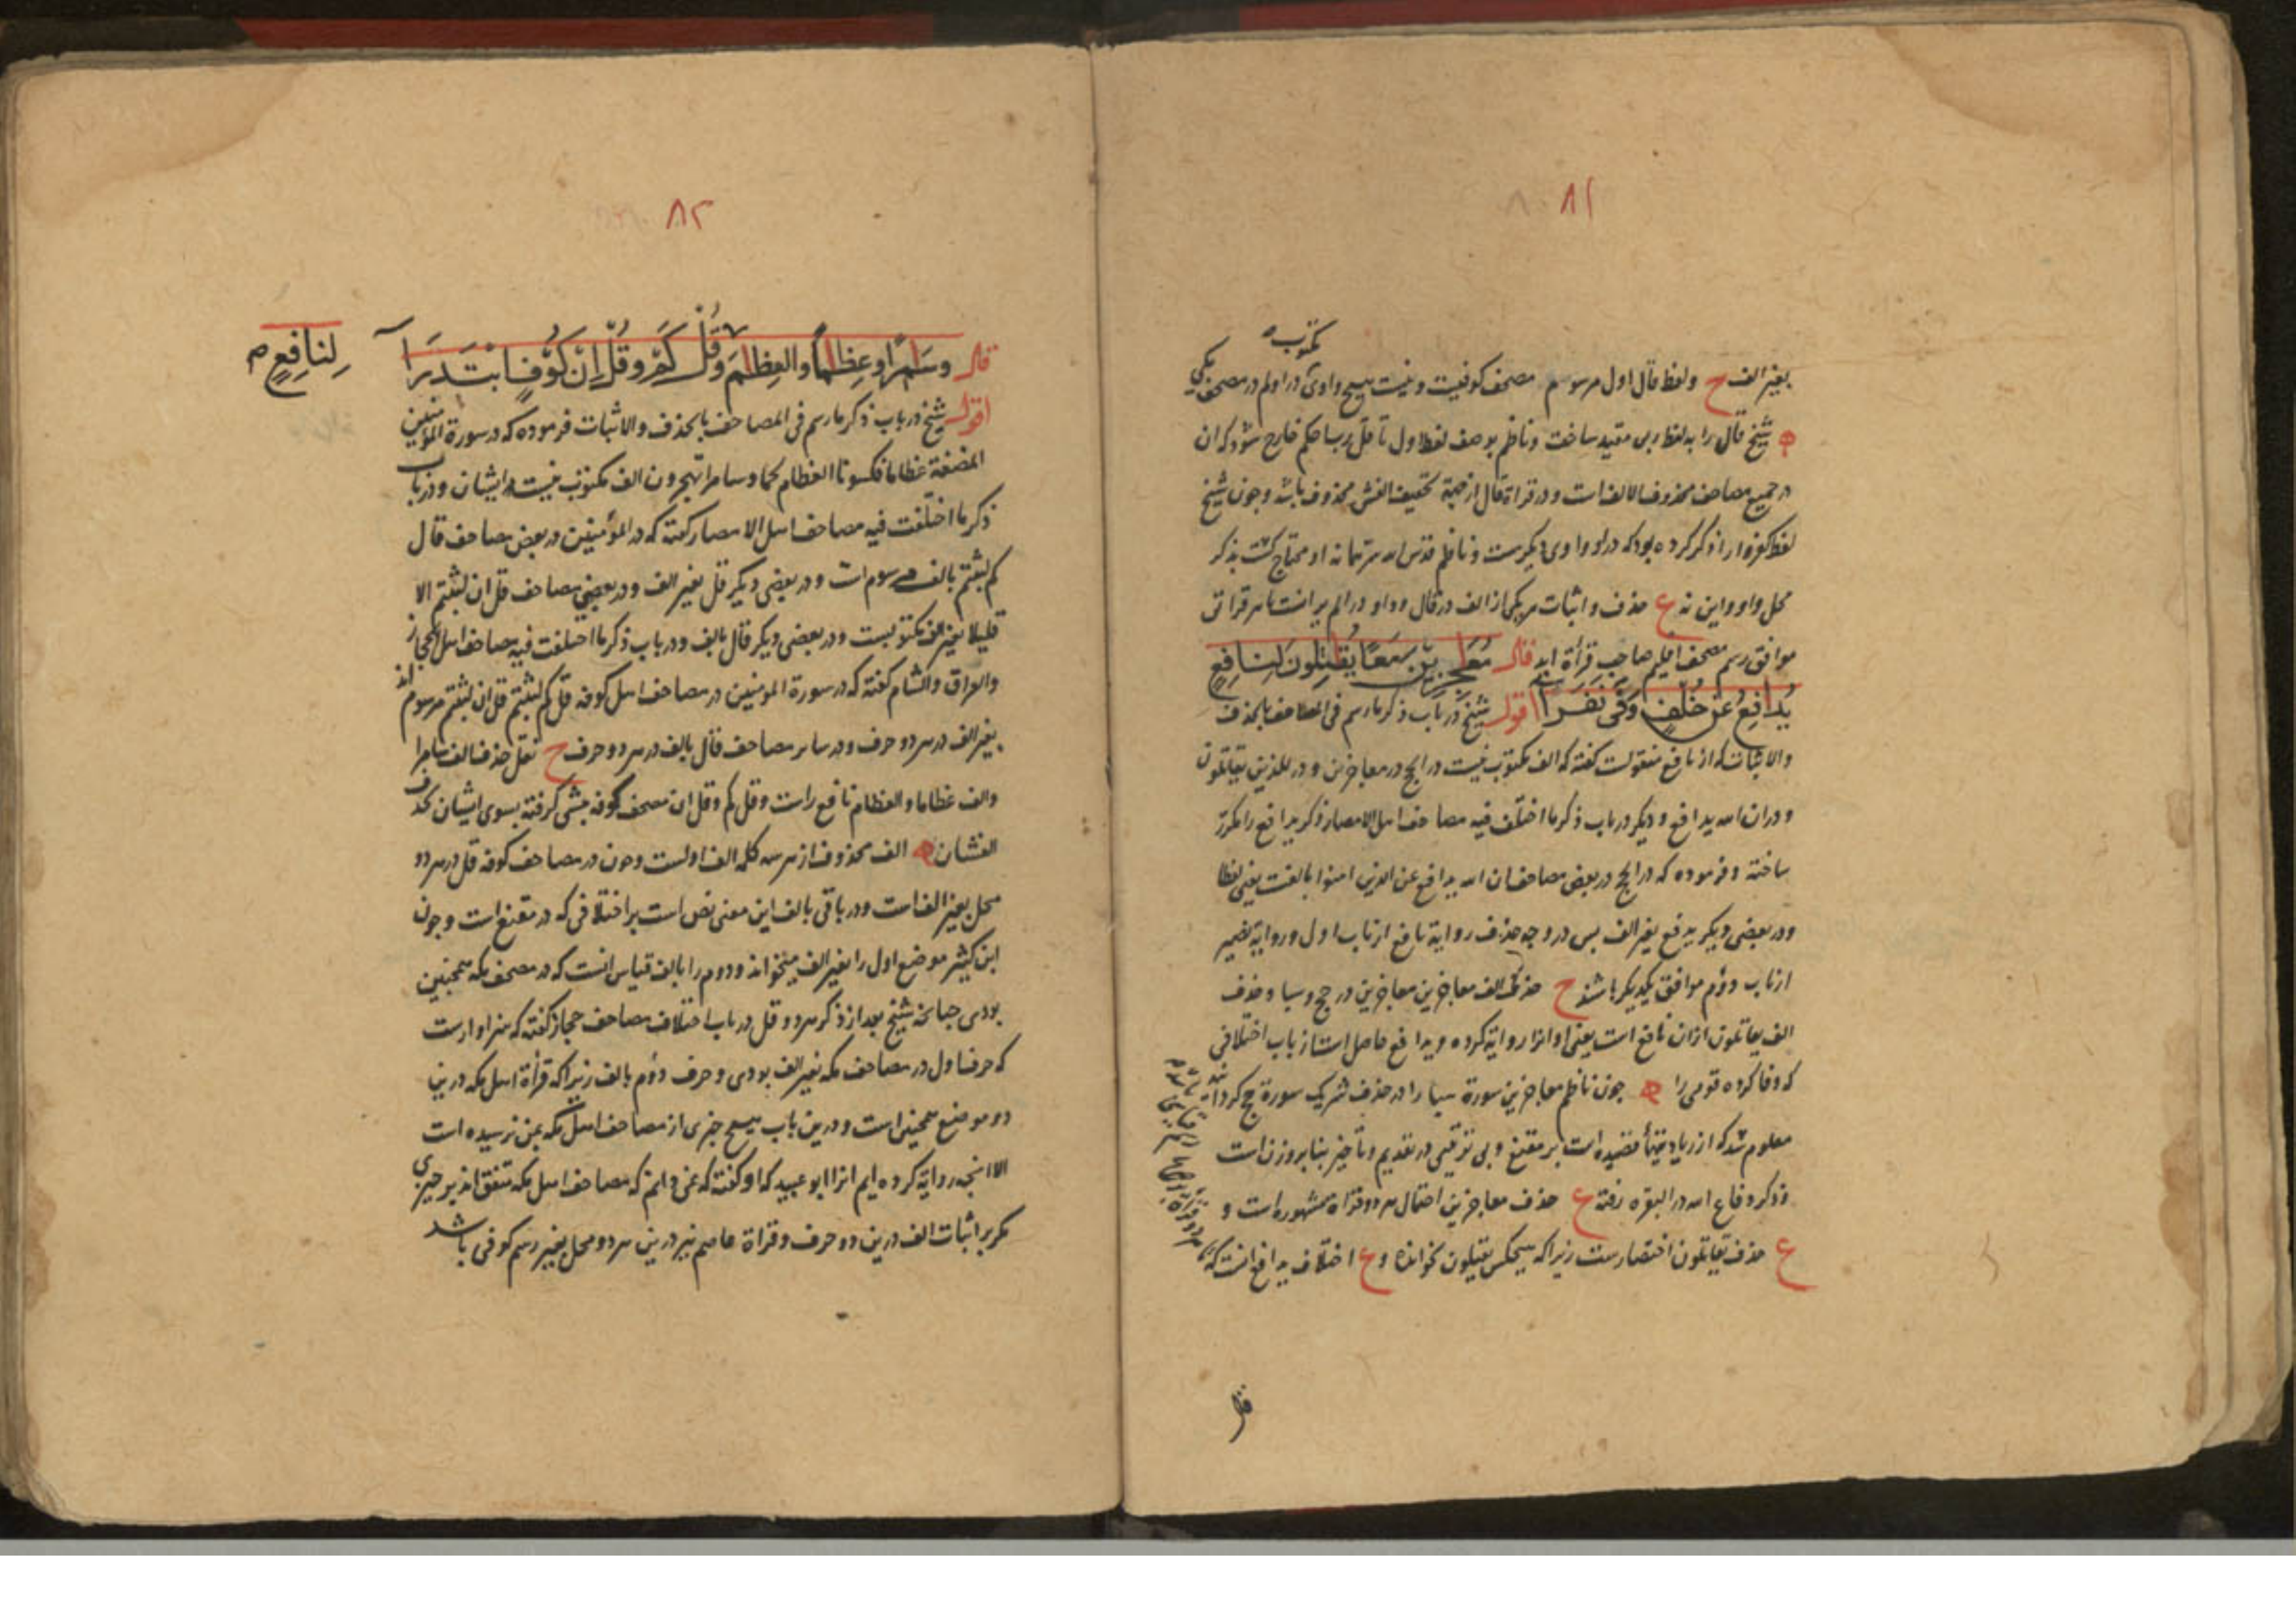 ۸۱
مکتوب
بغیر الف ح ولفظ قال اول مرسوم مصحف کوفیست و نیست هیچ واوی در اولم در مصحف مکی
شیخ قال را به لفظ ربی مقید ساخت و ناظم بوصف لفظ اول تا قل رب احکم خارج شود که ان
در جمیع مصاحف محذوف الالف است و در قراة قال از جهة تخفیف الفش محذوف باشد و چون شیخ
لفظ کفروا را ذکر کرده بود که در او واوی دیگرست و ناظم قدس الله سره او محتاج گشت بذکر
محل واو و این نه ع حذف و اثبات هر یکی از الف در قال و واو در الم یر انست تا هر قراتی
موافق رسم مصحف اقلیم صاحب قرأة اید قال مُعٰجِزِین سَمَعًا یُقٰتِلُونَ لِنَافِعٍ
یُدَافِعُ عَنْ خُلْفٍ وَفَّى نَفَرَا اقول شیخ در باب ذکر ما رسم فی المصاحف بالحذف
والاثبات که از نافع منقولست گفته که الف مکتوب نیست در الحج در معاجزین و در للذین یقاتلون
و در ان الله یدافع و دیگر در باب ذکر ما اختلف فیه مصاحف اهل الامصار ذکر یدافع را مکرر
ساخته و فرموده که در الحج در بعض مصاحف ان الله یدافع عن الذین امنوا بالفست یعنی لفظا
و در بعضی دیگر یدفع بغیر الف پس در وجه حذف روایة نافع از باب اول و روایة غیر
از باب دوم موافق یکدیگر باشند ح حذف الف معاجزین معاجزین در حج و سبا و حذف
الف یقاتلون ازان نافع است یعنی او انرا روایة کرده و یدافع حاصل است از باب اختلافی
که وفا کرده قومی را چون ناظم معاجزین سورة سبا را در حذف شریک سورة حج کردانید
معلوم شد که از زیادتیهأ قصیده است بر مقنع و بی ترتیبی در تقدیم و تأخیر بنا بر وزن است
و ذکر دفاع الله در البقره رفته ع حذف معاجزین احتمال هر دو قراة مشهوره است و
ع حذف یقاتلون اختصارست زیرا که هیچکس یقتلون نخوانده و ع اختلاف یدافع انست که
قال
۸۲
قال وَسَامِرًا وعِظَامًا والعِظَامَ وَقُلْ كَمْ وقُلْ إِنْ كُوْفٍ ابْتَدَرَا
لِنَافِعٍ م
اقول شیخ در باب ذکر ما رسم فی المصاحف بالحذف والاثبات فرموده که در سورة المؤمنین
المضغة عظاما فکسونا العظام لحما و سامرا تهجرون الف مکتوب نیست در ایشان و در باب
ذکر ما اختلفت فیه مصاحف اهل الامصار گفته که در المؤمنین در بعض مصاحف قال
کم لبثتم بالف مرسوم است و در بعضی دیگر قل بغیر الف و در بعضی مصاحف قل ان لبثتم الا
قلیلا بغیر الف مکتوبست و در بعضی دیگر قال بالف و در باب ذکر ما اختلفت فیه مصاحف اهل الحجاز
والعراق والشام گفته که در سورة المومنین در مصاحف اهل کوفه قل کم لبثتم قل ان لبثتم مرسوم اند
بغیر الف در هر دو حرف و در سایر مصاحف قال بالف در هر دو حرف ح نقل حذف الف سامرا
والف عظاما والعظام نافع راست و قل کم و قل ان مصحف کوفه پیشی گرفته بسوی ایشان بحذف
الفشان الف محذوف از هر سه کلمه الف اولست و چون در مصاحف کوفه قل در هر دو
محل بغیر الف است و در باقی بالف این معنی نص است بر اختلافی که در مقنع است و چون
ابن کثیر موضع اول را بغیر الف میخواند و دوم را بالف قیاس انست که در مصحف مکه همچنین
بودی چنانچه شیخ بعد از ذکر هر دو قل در باب اختلاف مصاحف حجاز گفته که سزاوارست
که حرف اول در مصاحف مکه بغیر الف بودی و حرف دوم بالف زیرا که قرأة اهل مکه درین
دو موضع همچنین است و درین باب هیچ چیزی از مصاحف اهل مکه بمن نرسیده است
الا انچه روایة کرده ایم انرا ابو عبید که او گفته که نمی دانم که مصاحف اهل مکه متفق اند بر چیزی
مگر بر اثبات الف درین دو حرف و قراة عاصم نیز درین هر دو محل بغیر رسم کوفی باشد